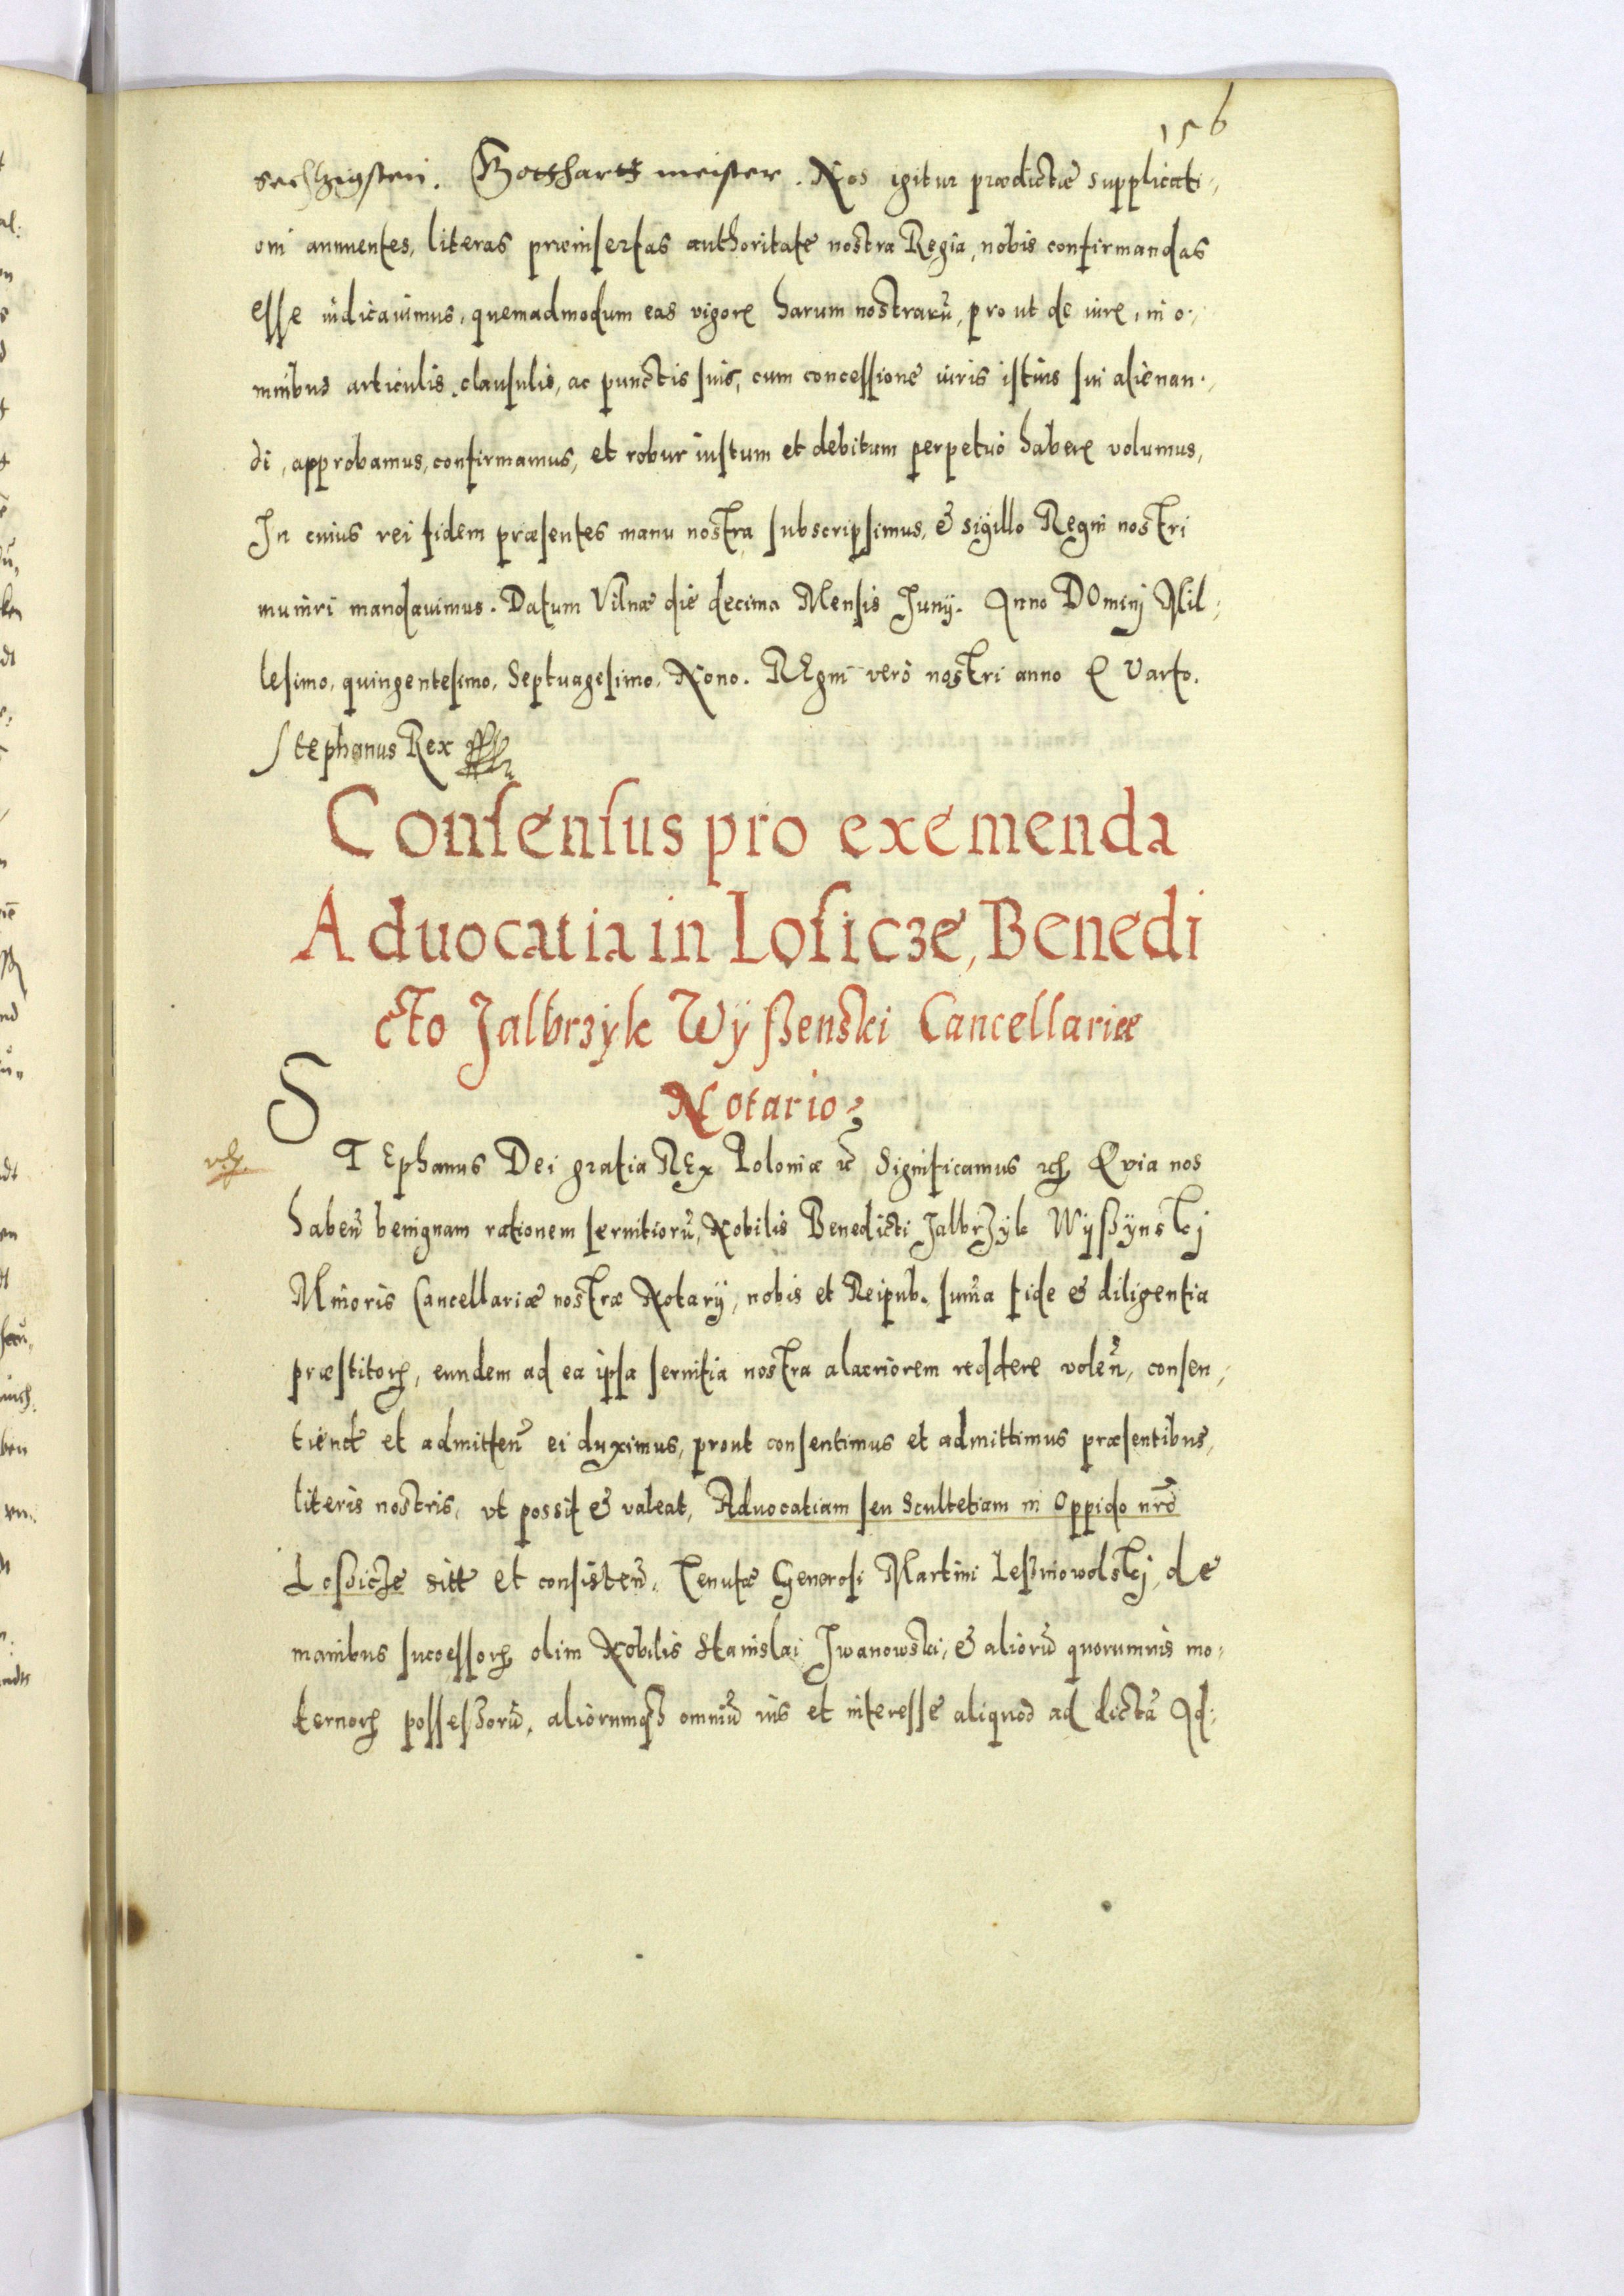 156
sechtzigsten. Gotthartt meister. Nos igitur prædictæ supplicati,
oni annuentes, literas præinsertas authoritate nostra Regia, nobis confirmandas
esse iudicauimus, quemadmodum eas vigore harum nostrarũ, pro ut de iure, in o,
mnibus articulis, clausulis, ac punctis suis, cum concessione iuris istius sui alienan,
di, approbamus, confirmamus, et robur iustum et debitum perpetuò habere volumus,
In cuius rei fidem præsentes manu nostra subscripsimus, & sigillo Regni nostri
muniri mandauimus. Datum Vilnæ die decima Mensis Junij. Anno DOminj Mil,
lesimo, quingentesimo, Septuagesimo, Nono. REgni verò nostri anno QVarto.
Stephanus Rex
Consensus pro exemenda
Aduocatia in Losicze, Benedi
cto Jalbrzyk Wÿßenski Cancellariæ
Notario
S
TEphanus Dei gratia REx Poloniæ Significamus Qvia nos
habeñ benignam rationem seruitiorũ, Nobilis Benedicti Jalbrzyk Wÿßÿnskj
Minoris Cancellariæ nostræ Notarÿ, nobis et Reipub. sum̃a fide & diligentia
præstitorꝝ, eundem ad ea ipsa seruitia nostra alacriorem reddere voleñ, consen,
tiend et admitteñ ei duximus, prout consentimus et admittimus præsentibus,
literis nostris, vt possit & valeat, Aduocatiam seu Scultetiam in Oppido nrõ
Loßicze sitt et consisteñ, Tenutæ Generosi Martini Leßniowolskj, de
manibus successorꝝ olim Nobilis Stanislai Jwanowski, & aliorũ quorumuis mo,
dernorꝝ possessorũ, aliorumqꝫ omniũ ius et interesse aliquod ad dictã Ad,